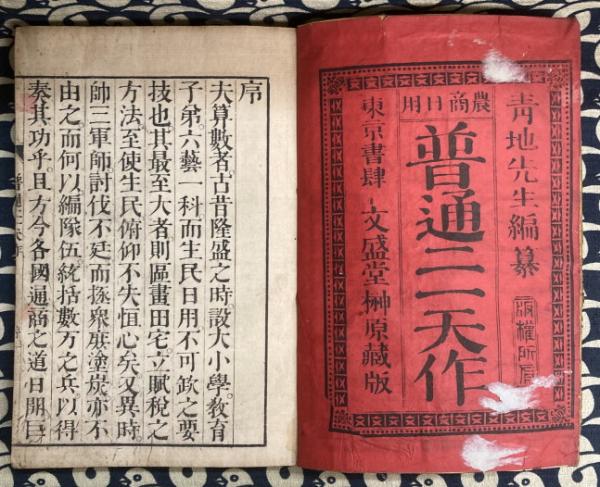 農商日用
青地先生編纂
版權所有
普通二一天作
東京書肆 文盛堂榊原藏版
序
夫算數者古昔隆盛之時設大小學。敎育
子弟。六藝一科而生民日用不可欽之要
技也其最至大者則區畫田宅立賦稅之
方法至使生民俯仰不失恒心矣又異時
帥三軍師討伐不廷而拯衆庶塗炭亦不
由之而何以編隊伍統括數万之兵。以得
奏其功乎。且方今各國通商之道日開巨